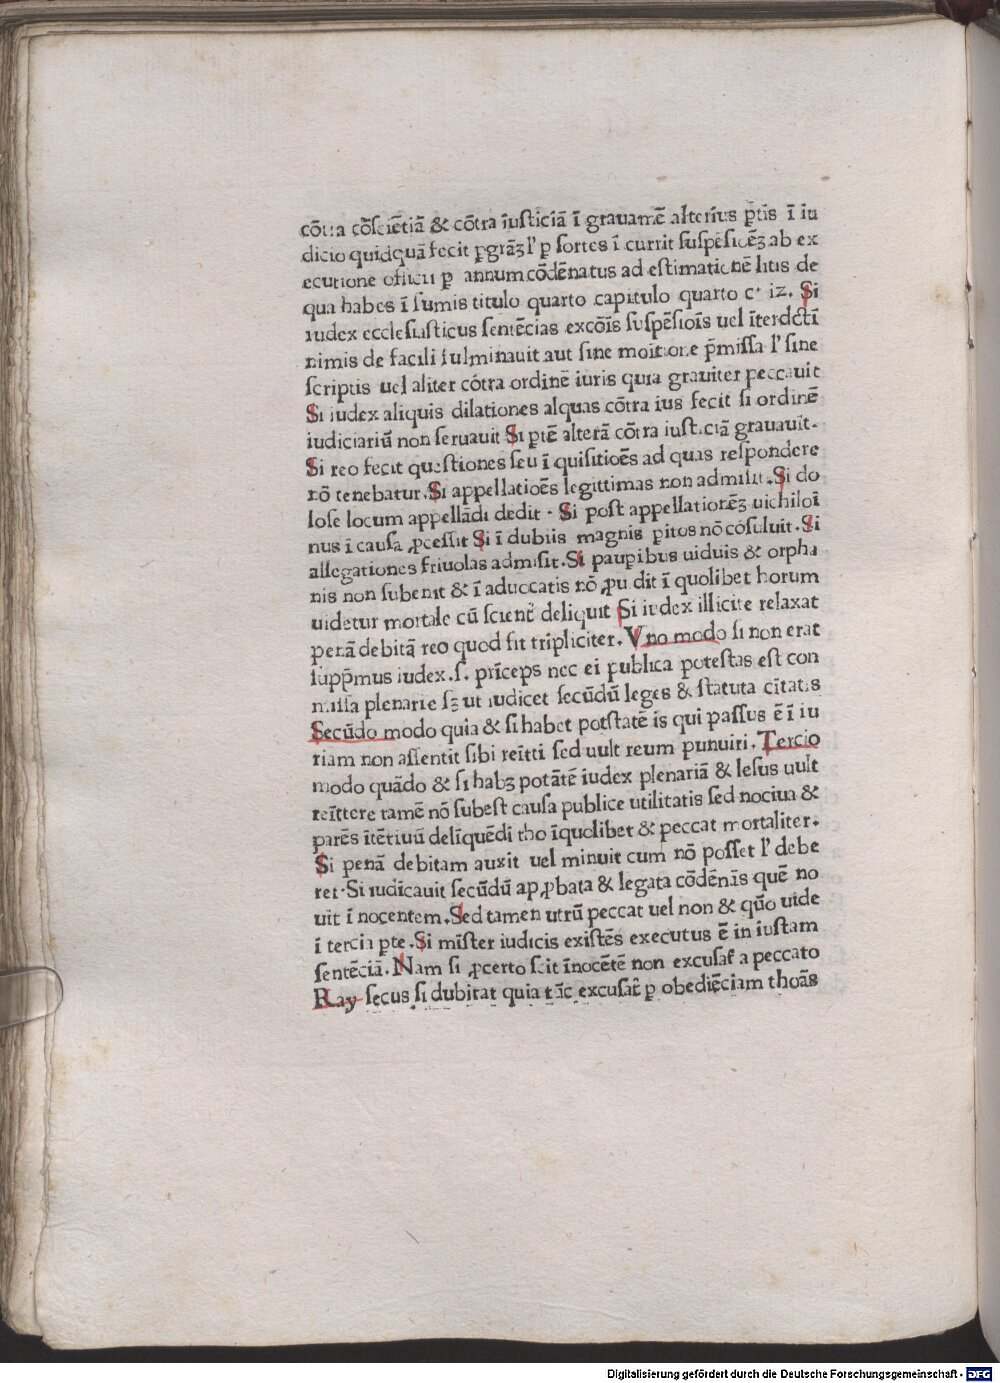 cōtra cōſciētiā & cōtra iuſticiā ī grauamē alterius ꝑtis ī iu
dicio quidquā fecit ꝑgrāꝫ l' ꝑ ſortes ī currit ſuſpēſiōēꝫ ab ex
ecutione officii ꝑ annum cōdēnatus ad eſtimationē litis de
qua habes ī ſumis titulo quarto capitulo quarto c' iz. Si
iudex eccleſiaſticus ſentēcias excōīs ſuſpēſiōīs uel īterdctī
nimis de facili fulminauit aut ſine moītione p̄miſſa l' ſine
ſcriptis uel aliter cōtra ordinē iuris quia grauiter peccauit
Si iudex aliquis dilationes alquas cōtra ius fecit ſi ordinē
iudiciariū non ſeruauit Si ꝑtē alterā cōtra iuſticiā grauauit.
Si reo fecit queſtiones ſeu ī quiſitioēs ad quas reſpondere
nō tenebatur. Si appellatioēs legittimas non admiſit. Si do
loſe locum appellādi dedit · Si poſt appellationēꝫ uichiloī
nus ī cauſa ꝓceſſit Si ī dubiis magnis ꝑitos nō cōſuluit. Si
allegationes friuolas admiſit. Si pauꝑibus uiduis & orpha
nis non ſubenit & ī aduocatis nō ꝓu dit ī quolibet horum
uidetur mortale cū ſcient̄ deliquit Si iudex illicite relaxat
penā debitā reo quod fit tripliciter. Vno modo ſi non erat
ſupp̄mus iudex. ſ. prīceps nec ei publica poteſtas eſt con
miſſa plenarie ſꝫ ut iudicet ſecūdū leges & ſtatuta cītatis
Secūdo modo quia & ſi habet potſtatē is qui paſſus ē ī iu
riam non aſſentit ſibi reītti ſed uult reum punuiri. Tercio
modo quādo & ſi habꝫ potātē iudex plenariā & leſus uult
reīttere tamē nō ſubeſt cauſa publice utilitatis ſed nociua &
parēs itēriuū delīquēdi tho īquolibet & peccat mortaliter.
Si penā debitam auxit uel minuit cum nō poſſet l' debe
ret · Si iudicauit ſecūdū ap ꝓbata & legata cōdēnās quē no
uit ī nocentem. Sed tamen utrū peccat uel non & quō uide
ī tercia ꝑte. Si mīſter iudicis exiſtēs executus ē in iuſtam
ſentēciā. Nam ſi ꝓcerto ſcit īnocētē non excuſat̄ a peccato
Ray ſecus ſi dubitat quia tāc excuſat̄ ꝑ obediēciam thoās
Digitalisierung gefördert durch die Deutsche Forschungsgemeinschaft - DFG